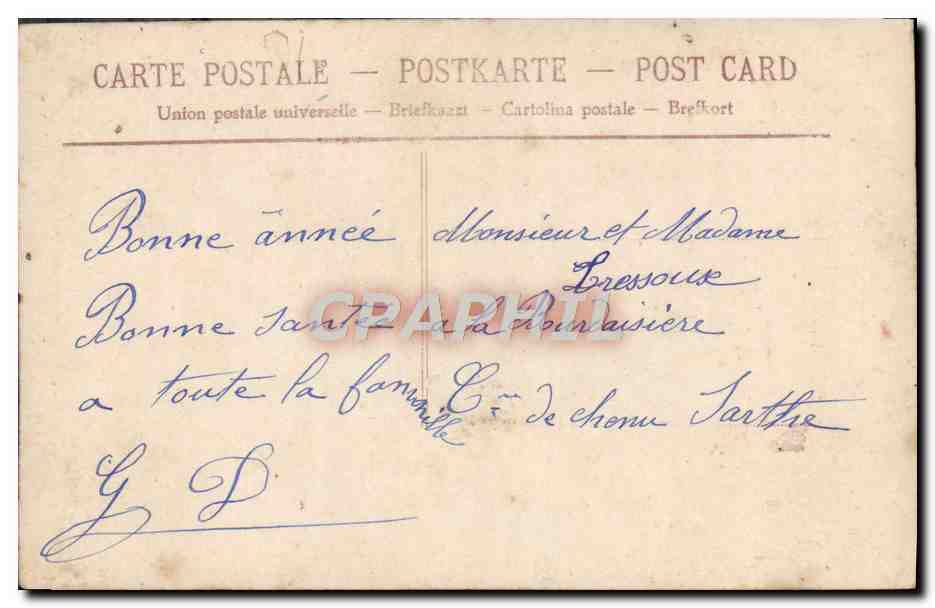 CARTE POSTALE — POSTKARTE — POST CARD
Union postale universelle — Briefkaart — Cartolina postale — Brefkort
Bonne année
Bonne santée
a toute la fammille
G D
Monsieur et Madame
Tressoux
a la
Cne de chenu Sarthe
CPAPHIL